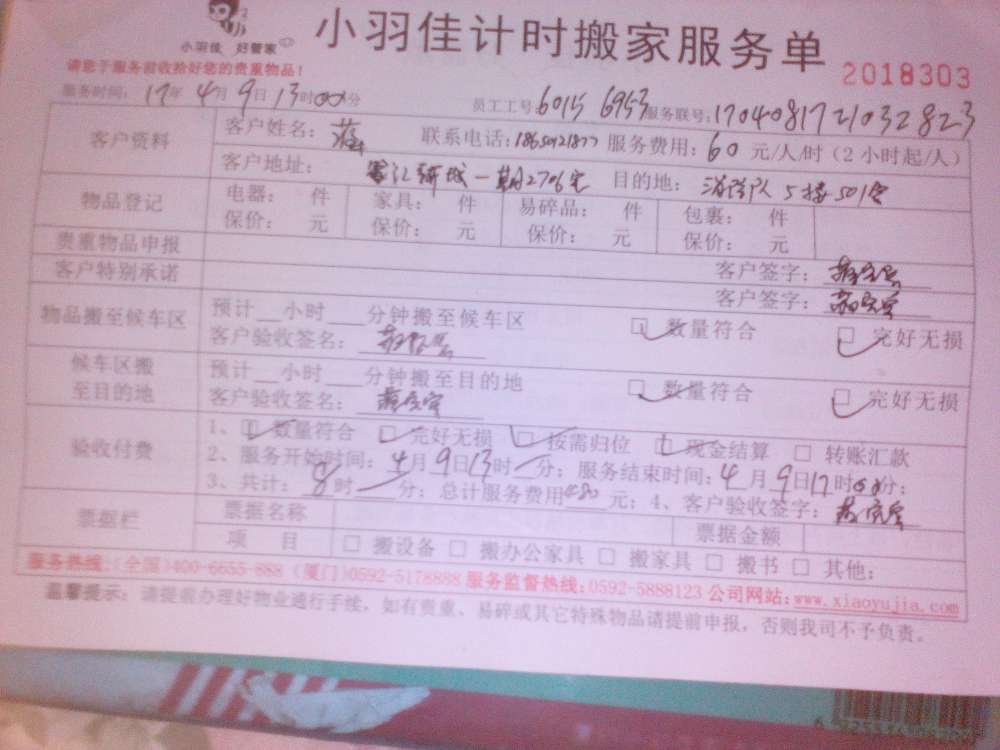 小羽佳 好管家
小羽佳计时搬家服务单
请您于服务前收拾好您的贵重物品！
2018303
服务时间：17年4月9日13时00分 员工工号：6015 6953 服务联号：1704081721032823
客户资料 客户姓名： 联系电话： 服务费用：60元/人/时（2小时起/人）
客户地址： 一期2706室 目的地： 5楼501室
物品登记 电器： 件 家具： 件 易碎品： 件 包裹： 件
保价： 元 保价： 元 保价： 元 保价： 元
贵重物品申报 客户签字：
客户特别承诺 客户签字：
物品搬至候车区 预计__小时___分钟搬至候车区 □ 数量符合 □ 完好无损
客户验收签名：
候车区搬至目的地 预计__小时___分钟搬至目的地 □ 数量符合 □ 完好无损
客户验收签名：
验收付费 1、□ 数量符合 □ 完好无损 □ 按需归位 □ 现金结算 □ 转账汇款
2、服务开始时间：4月9日13时__分；服务结束时间：4月9日17时00分；
3、共计：8时___分；总计服务费用480元；4、客户验收签字：
票据栏 票据名称 票据金额
项 目 □ 搬设备 □ 搬办公家具 □ 搬家具 □ 搬书 □ 其他：
服务热线：(全国)400-6655-888 (厦门)0592-5178888 服务监督热线：0592-5888123 公司网站：www.xiaoyujia.com
温馨提示：请提前办理好物业通行手续，如有贵重、易碎或其它特殊物品请提前申报，否则我司不予负责。